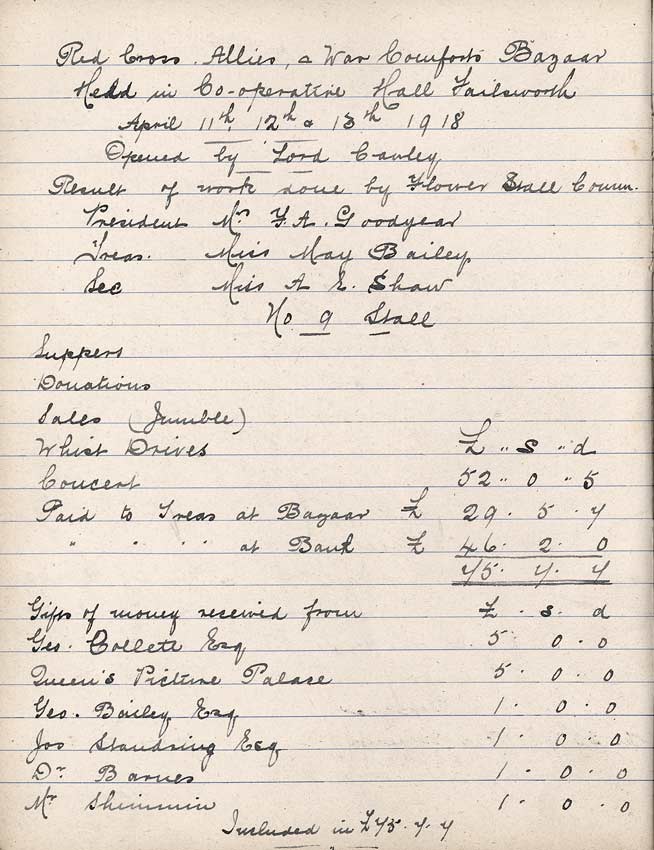 Red Cross. Allies, & War Comforts Bazaar
Held in Co-operative Hall Failsworth
April 11th, 12th & 13th 1918
Opened by Lord Cawley
Result of work done by Flower Stall Comm.
President Mrs F. A. Goodyear
Treas. Miss May Bailey
Sec Miss A E. Shaw
No 9 Stall
Suppers
Donations
Sales (Jumble)
Whist Drives £ " s " d
Concert 52 " 0 " 5
Paid to Treas at Bazaar £ 29 . 5 . 4
" " " " at Bank £ 46 . 2 . 0
75 . 7 . 4
Gifts of money received from £ . s . d
Geo. Collett Esq 5 . 0 . 0
Queen's Picture Palace 5 . 0 . 0
Geo. Bailey Esq 1 . 0 . 0
Jos Standring Esq 1 . 0 . 0
Dr Barnes 1 . 0 . 0
Mr Shimmin 1 . 0 . 0
Included in £75 . 7 . 4